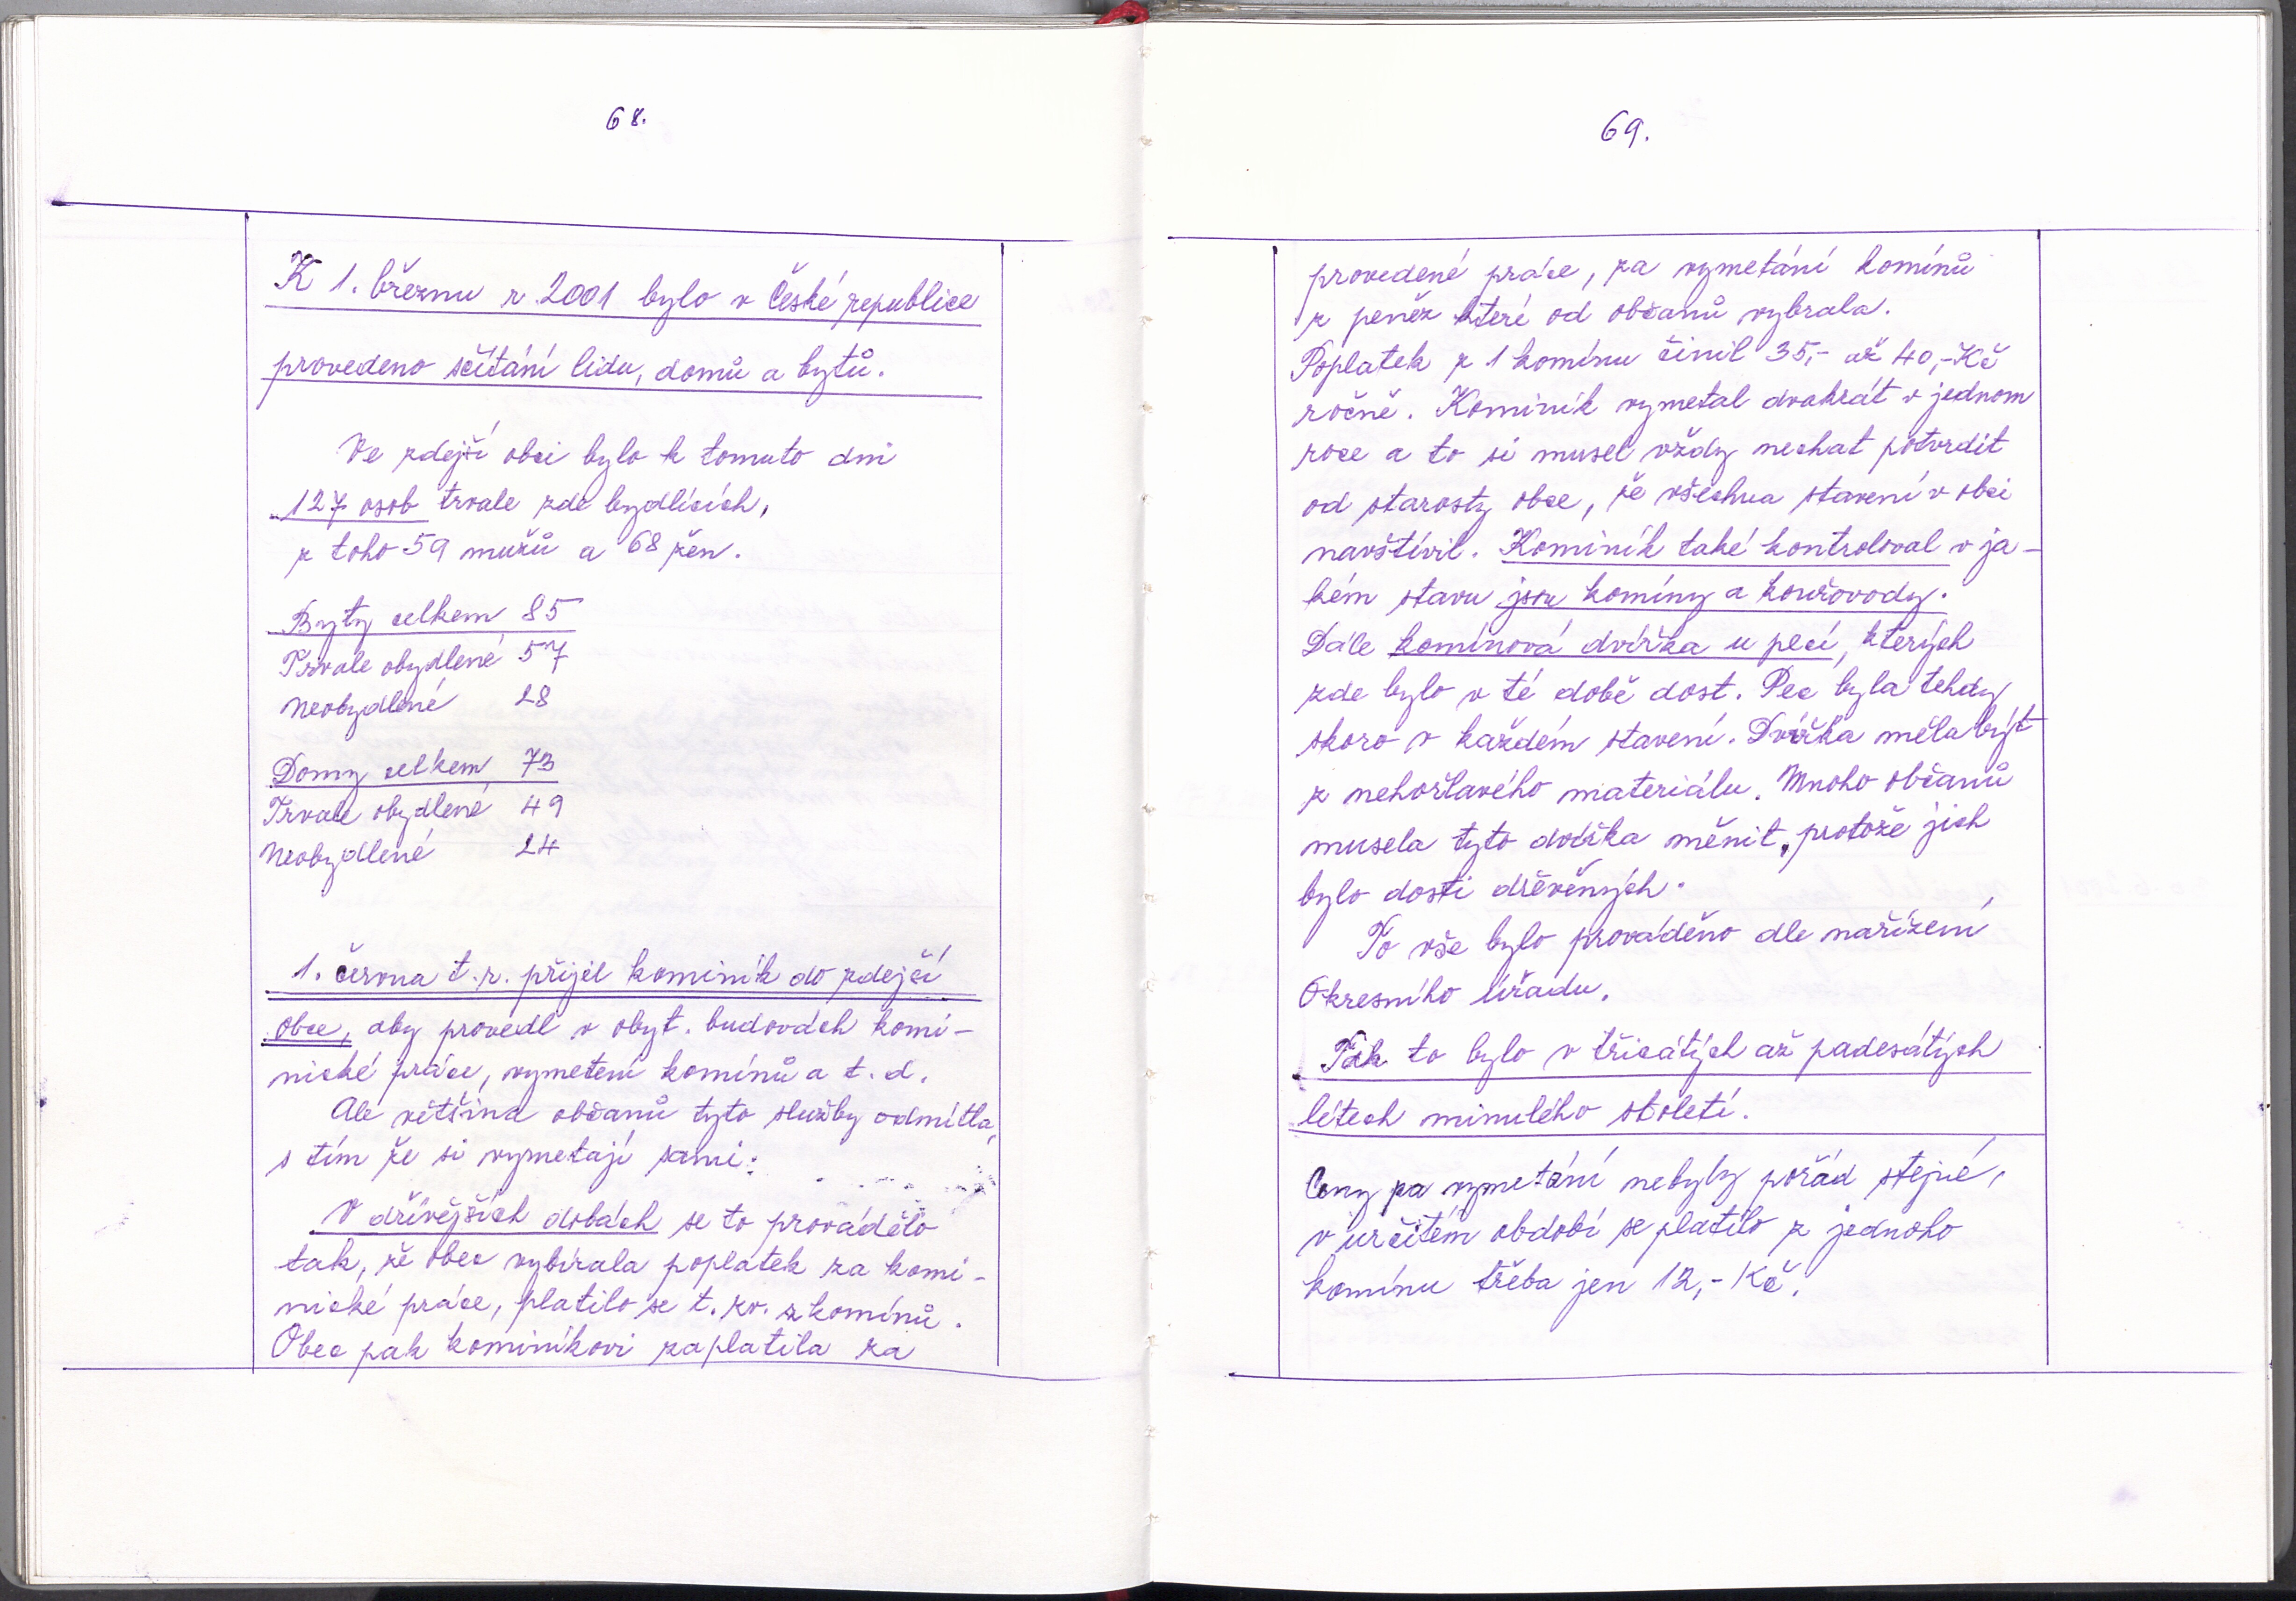 68.
K 1. březnu r. 2001 bylo v České republice
provedeno sčítání lidu, domů a bytů.
Ve zdejší obci bylo k tomuto dni
127 osob trvale zde bydlících,
z toho 59 mužů a 68 žen.
Byty celkem 85
Trvale obydlené 57
Neobydlené 28
Domy celkem 73
Trvale obydlené 49
Neobydlené 24
1. června t.r. přijel kominík do zdejší
obce, aby provedl v obyt. budovách komi-
nické práce, vymetení komínů a t. d.
Ale většina občanů tyto služby odmítla,
s tím že si vymetají sami.
V dřívějších dobách se to provádělo
tak, že obec vybírala poplatek za komi-
nické práce, platilo se t. zv. z komínů.
Obec pak kominíkovi zaplatila za
69.
provedené práce, za vymetání komínů
z peněz které od občanů vybrala.
Poplatek z 1 komínu činil 35,- až 40,- Kč
ročně. Kominík vymetal dvakrát v jednom
roce a to si musel vždy nechat potvrdit
od starosty obce, že všechna stavení v obci
navštívil. Kominík také kontroloval v ja-
kém stavu jsou komíny a kouřovody.
Dále komínová dvířka u pecí, kterých
zde bylo v té době dost. Pec byla tehdy
skoro v každém stavení. Dvířka měla být
z nehořlavého materiálu. Mnoho občanů
musela tyto dvířka měnit, protože jich
bylo dosti dřevěných.
To vše bylo prováděno dle nařízení
Okresního úřadu.
Tak to bylo v třicátých až padesátých
létech minulého století.
Ceny za vymetání nebyly pořád stejné,
v určitém období se platilo z jednoho
komínu třeba jen 12,- Kč.